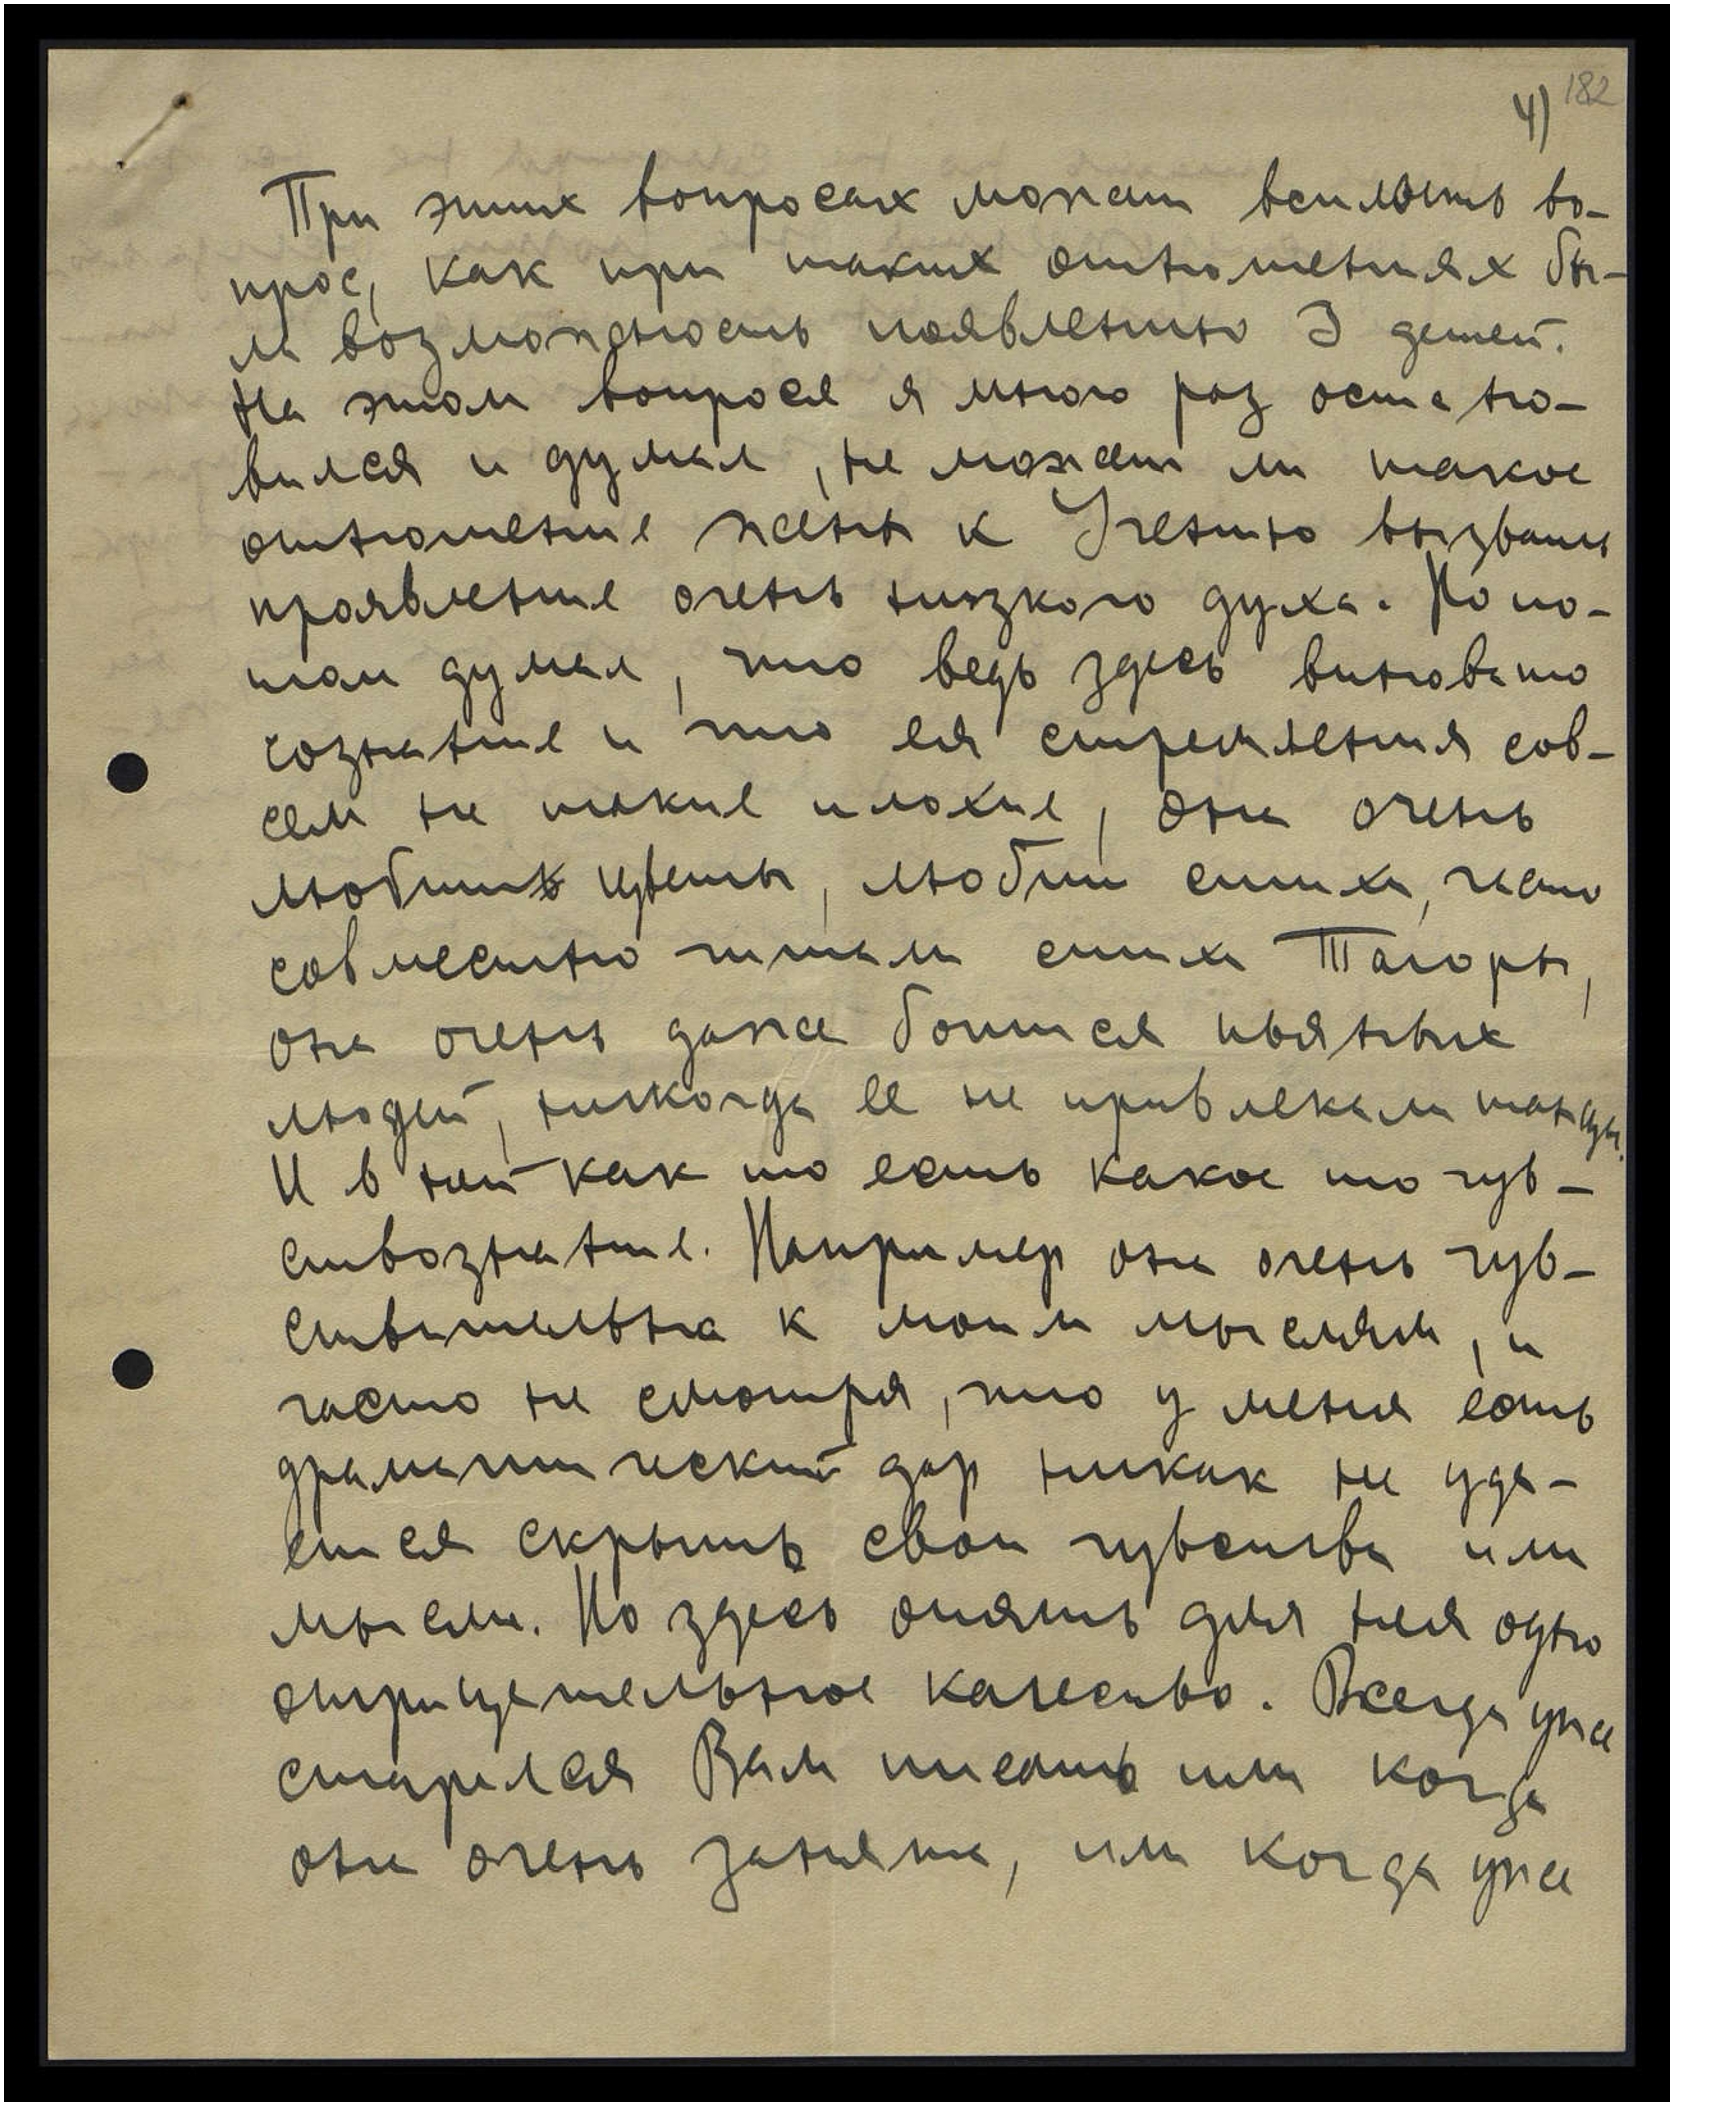 182
4)
При этих вопросах может всплыть во-
прос, как при таких отношениях бы-
ли возможность появлению 3 детей.
На этом вопросе я много раз остано-
вился и думал, не может ли такое
отношение жены к Учению вызвать
проявление очень низкого духа. Но по-
том думал, что ведь здесь виновато
сознание и что ея стремления сов-
сем не такие плохие, она очень
любит цветы, любит стихи, часто
совместно читали стихи Тагоры,
она очень даже боится пьяных
людей, никогда ее не привлекали танцы.
И в ней как то есть какое то чув-
ствознание. Например она очень чув-
ствительна к моим мыслям, и
часто не смотря, что у меня есть
драматический дар никак не уда-
ется скрыть свои чувства или
мысли. Но здесь опять для нея одно
отрицательное качество. Всегда уже
старался Вам писать или когда
она очень занята, или когда уже